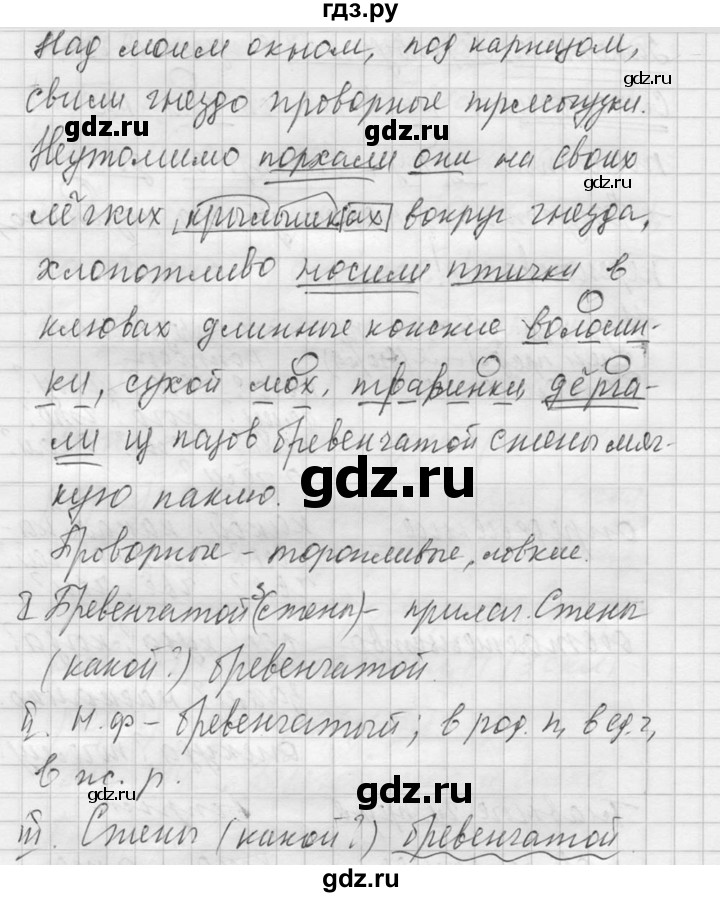 гдз.ру
Над моим окном, под карнизом,
gdz.ru
свили гнездо проворные трясогузки.
gdz.ru gdz.ru
Неутомимо порхали они на своих
gdz.ru
лёгких крылышках вокруг гнезда,
хлопотливо носили птички в
клювах длинные конские волосин-
ки, сухой мох, травинки, дёрга-
ли из пазов бревенчатой стены мяг-
gdz.ru
кую паклю.
Проворные – торопливые, ловкие.
I Бревенчатой³ (стены) – прилаг. Стены
(какой?) бревенчатой.
II. Н.ф – бревенчатый; в род. п, в ед. ч,
в ж. р.
gdz.ru gdz.ru
III. Стены (какой?) бревенчатой.
gdz.ru